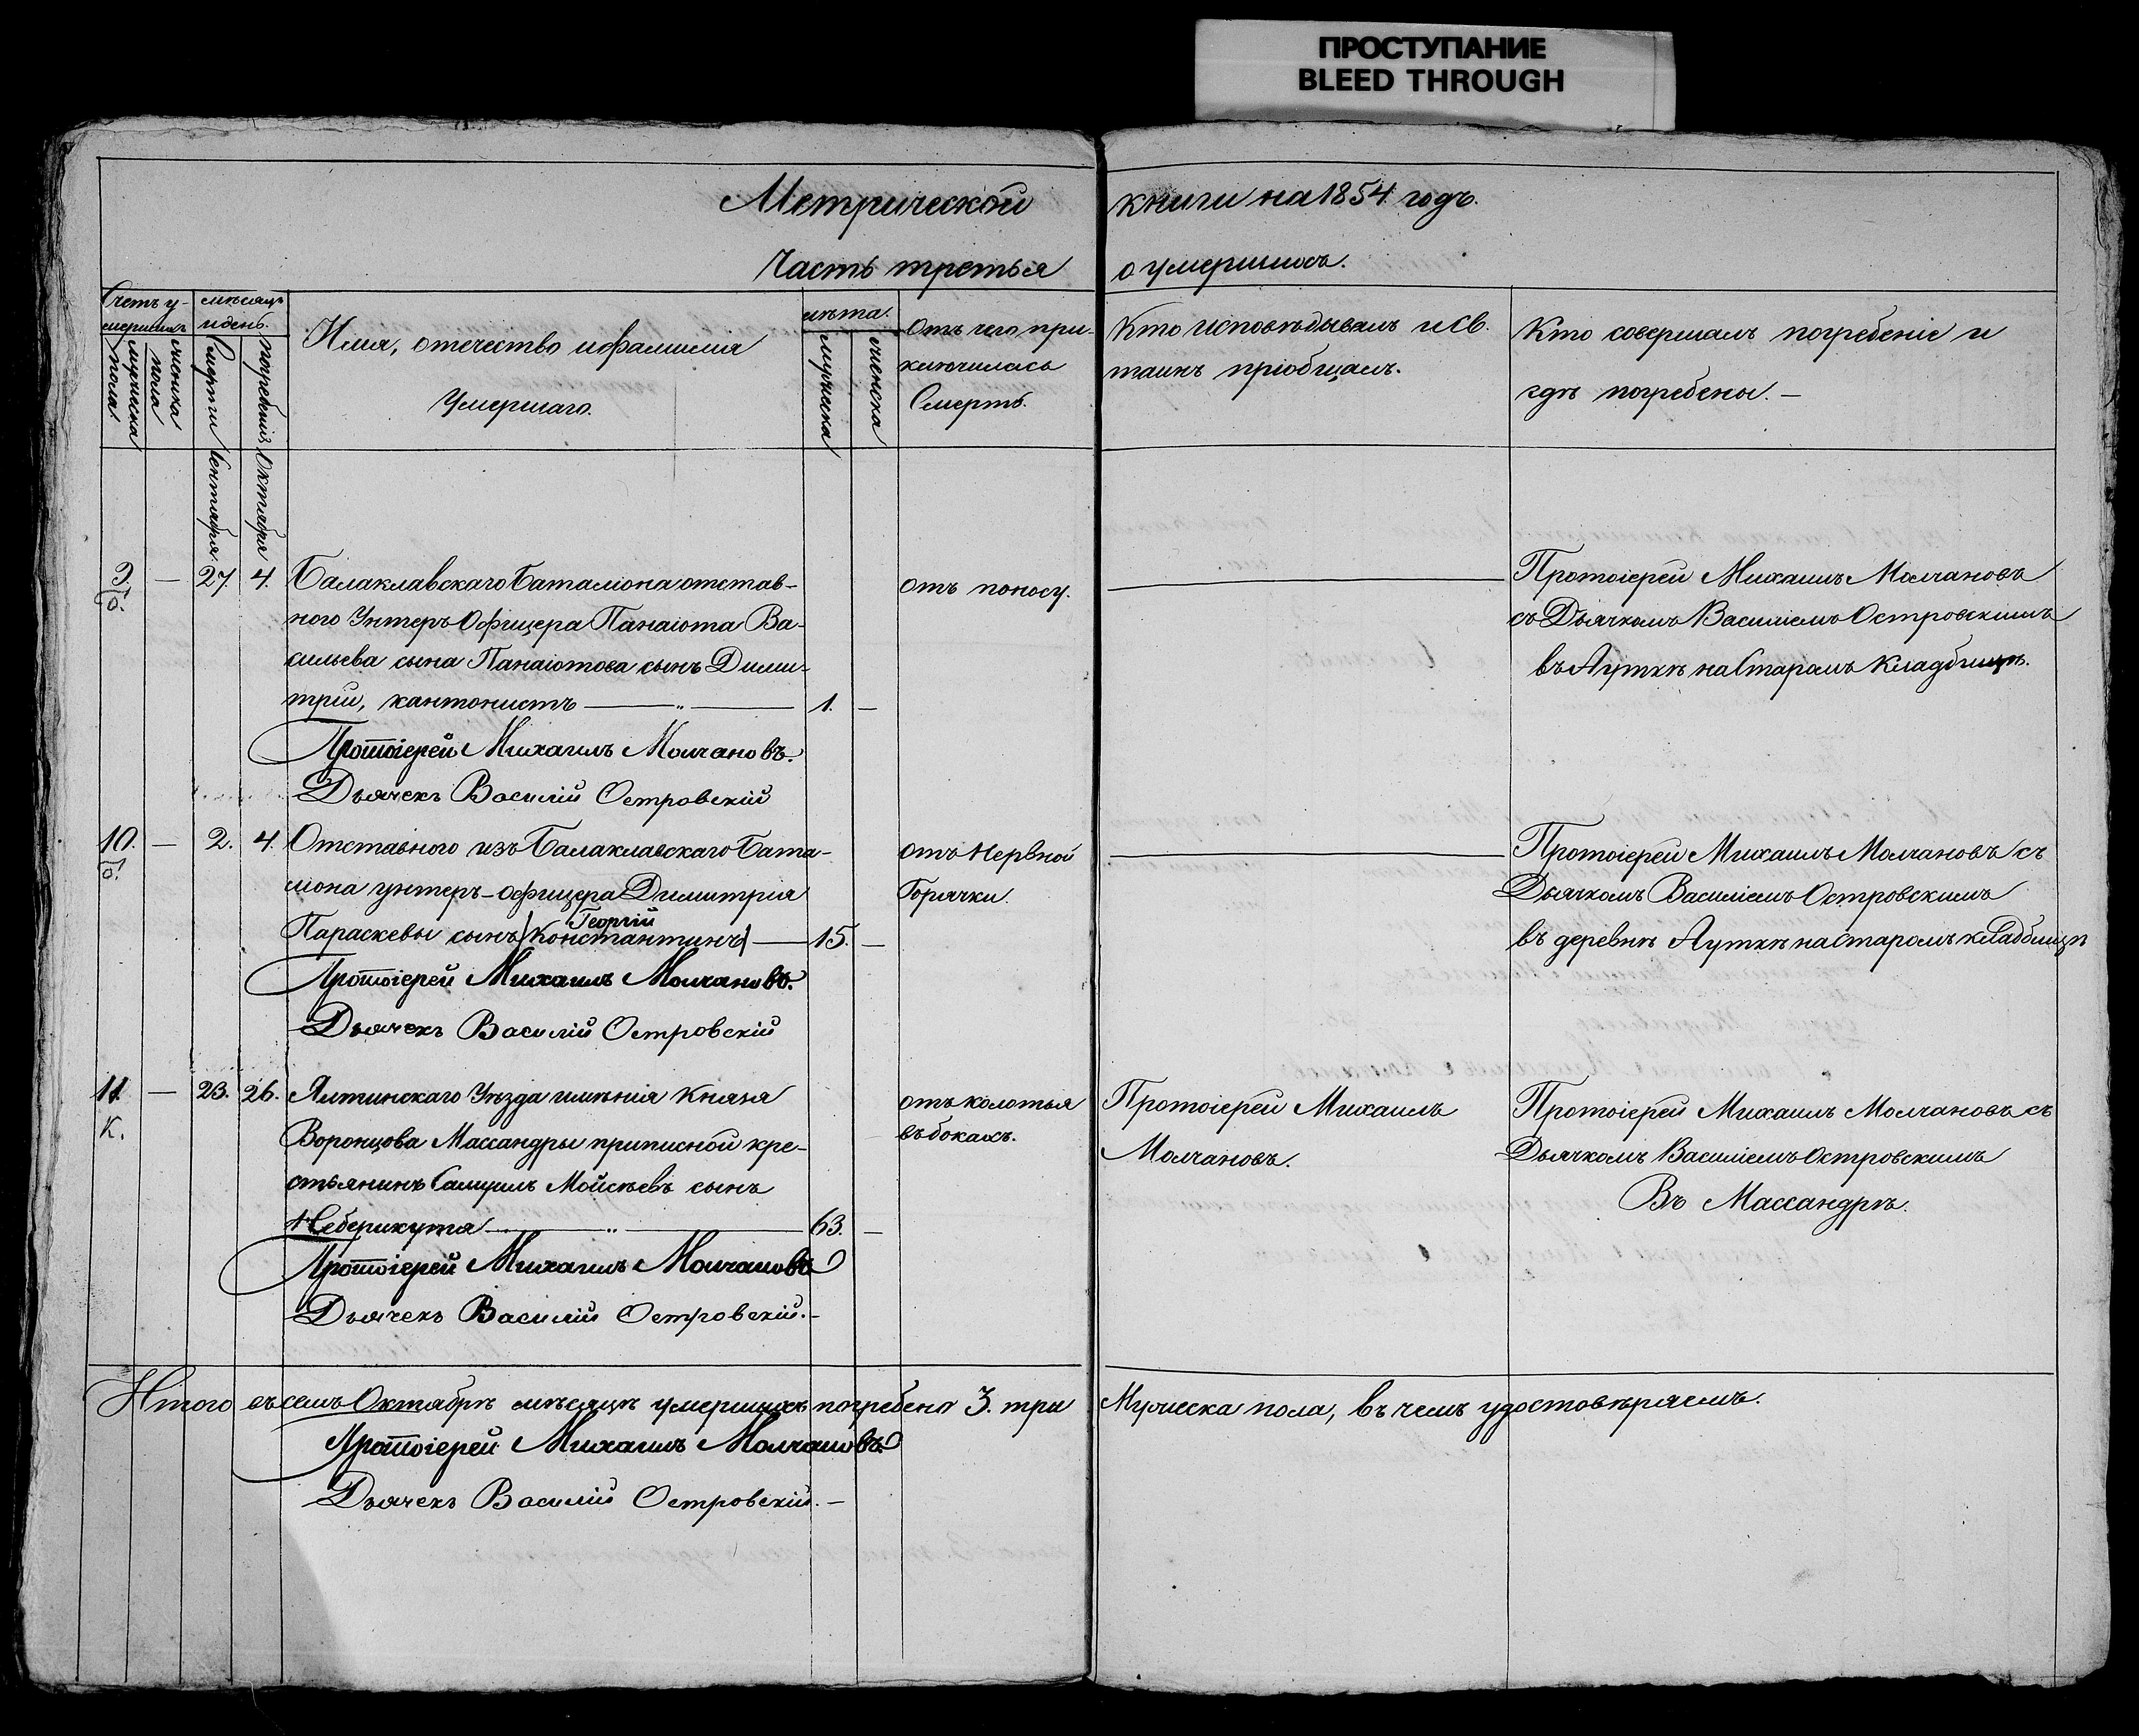 ПРОСТУПАНИЕ
BLEED THROUGH
Метрической книги на 1854 годъ.
Часть третья о умершихъ.
Счетъ у-
мершихъ
мужеска
пола.
женска
пола
мѣсяцъ
и день.
Смерти
погребенія
Имя, отечество и фамилія
Умершаго.
лѣта.
мужеска
женска
Отъ чего при-
ключилась
Смерть.
Кто исповѣдывалъ и св.
таинъ пріобщалъ.
Кто совершалъ погребеніе и
гдѣ погребены. —
Сентября.
Октября
9.
б.
—
27.
4.
Балаклавскаго Баталіона отстав-
ного Унтеръ Офицера Панаіота Ва-
сильева сына Панаіотова сынъ Дими-
трій, кантонистъ — „ —
1.
—
отъ поносу.
Протоіерей Михаилъ Молчановъ
съ Дьячкомъ Василіемъ Островскимъ
въ Ауткѣ на Старомъ Кладбищѣ.
Протоіерей Михаилъ Молчановъ.
Дьячекъ Василій Островскій
10.
б.
—
2.
4.
Отставного изъ Балаклавскаго Бата-
ліона унтеръ-офицера Димитрія
Георгій
Параскевы сынъ (Константинъ) —
15.
—
отъ Нервной
Горячки.
Протоіерей Михаилъ Молчановъ съ
Дьячкомъ Василіемъ Островскимъ
въ деревнѣ Ауткѣ на Старомъ кладбищѣ
Протоіерей Михаилъ Молчановъ.
Дьячекъ Василій Островскій
11.
К.
—
23.
26.
Ялтинскаго Уѣзда имѣнія Князя
Воронцова Массандры приписной кре-
стьянинъ Самуилъ Мойсѣевъ сынъ
— „ —
63.
—
отъ колотья
въ бокахъ.
Протоіерей Михаилъ
Молчановъ.
Протоіерей Михаилъ Молчановъ съ
Дьячкомъ Василіемъ Островскимъ
Въ Массандрѣ.
Протоіерей Михаилъ Молчановъ
Дьячекъ Василій Островскій. —
Итого въ семъ Октябрѣ мѣсяцѣ умершихъ погребено 3. три Мужеска пола, въ чемъ удостовѣряемъ.
Протоіерей Михаилъ Молчановъ
Дьячекъ Василій Островскій. —